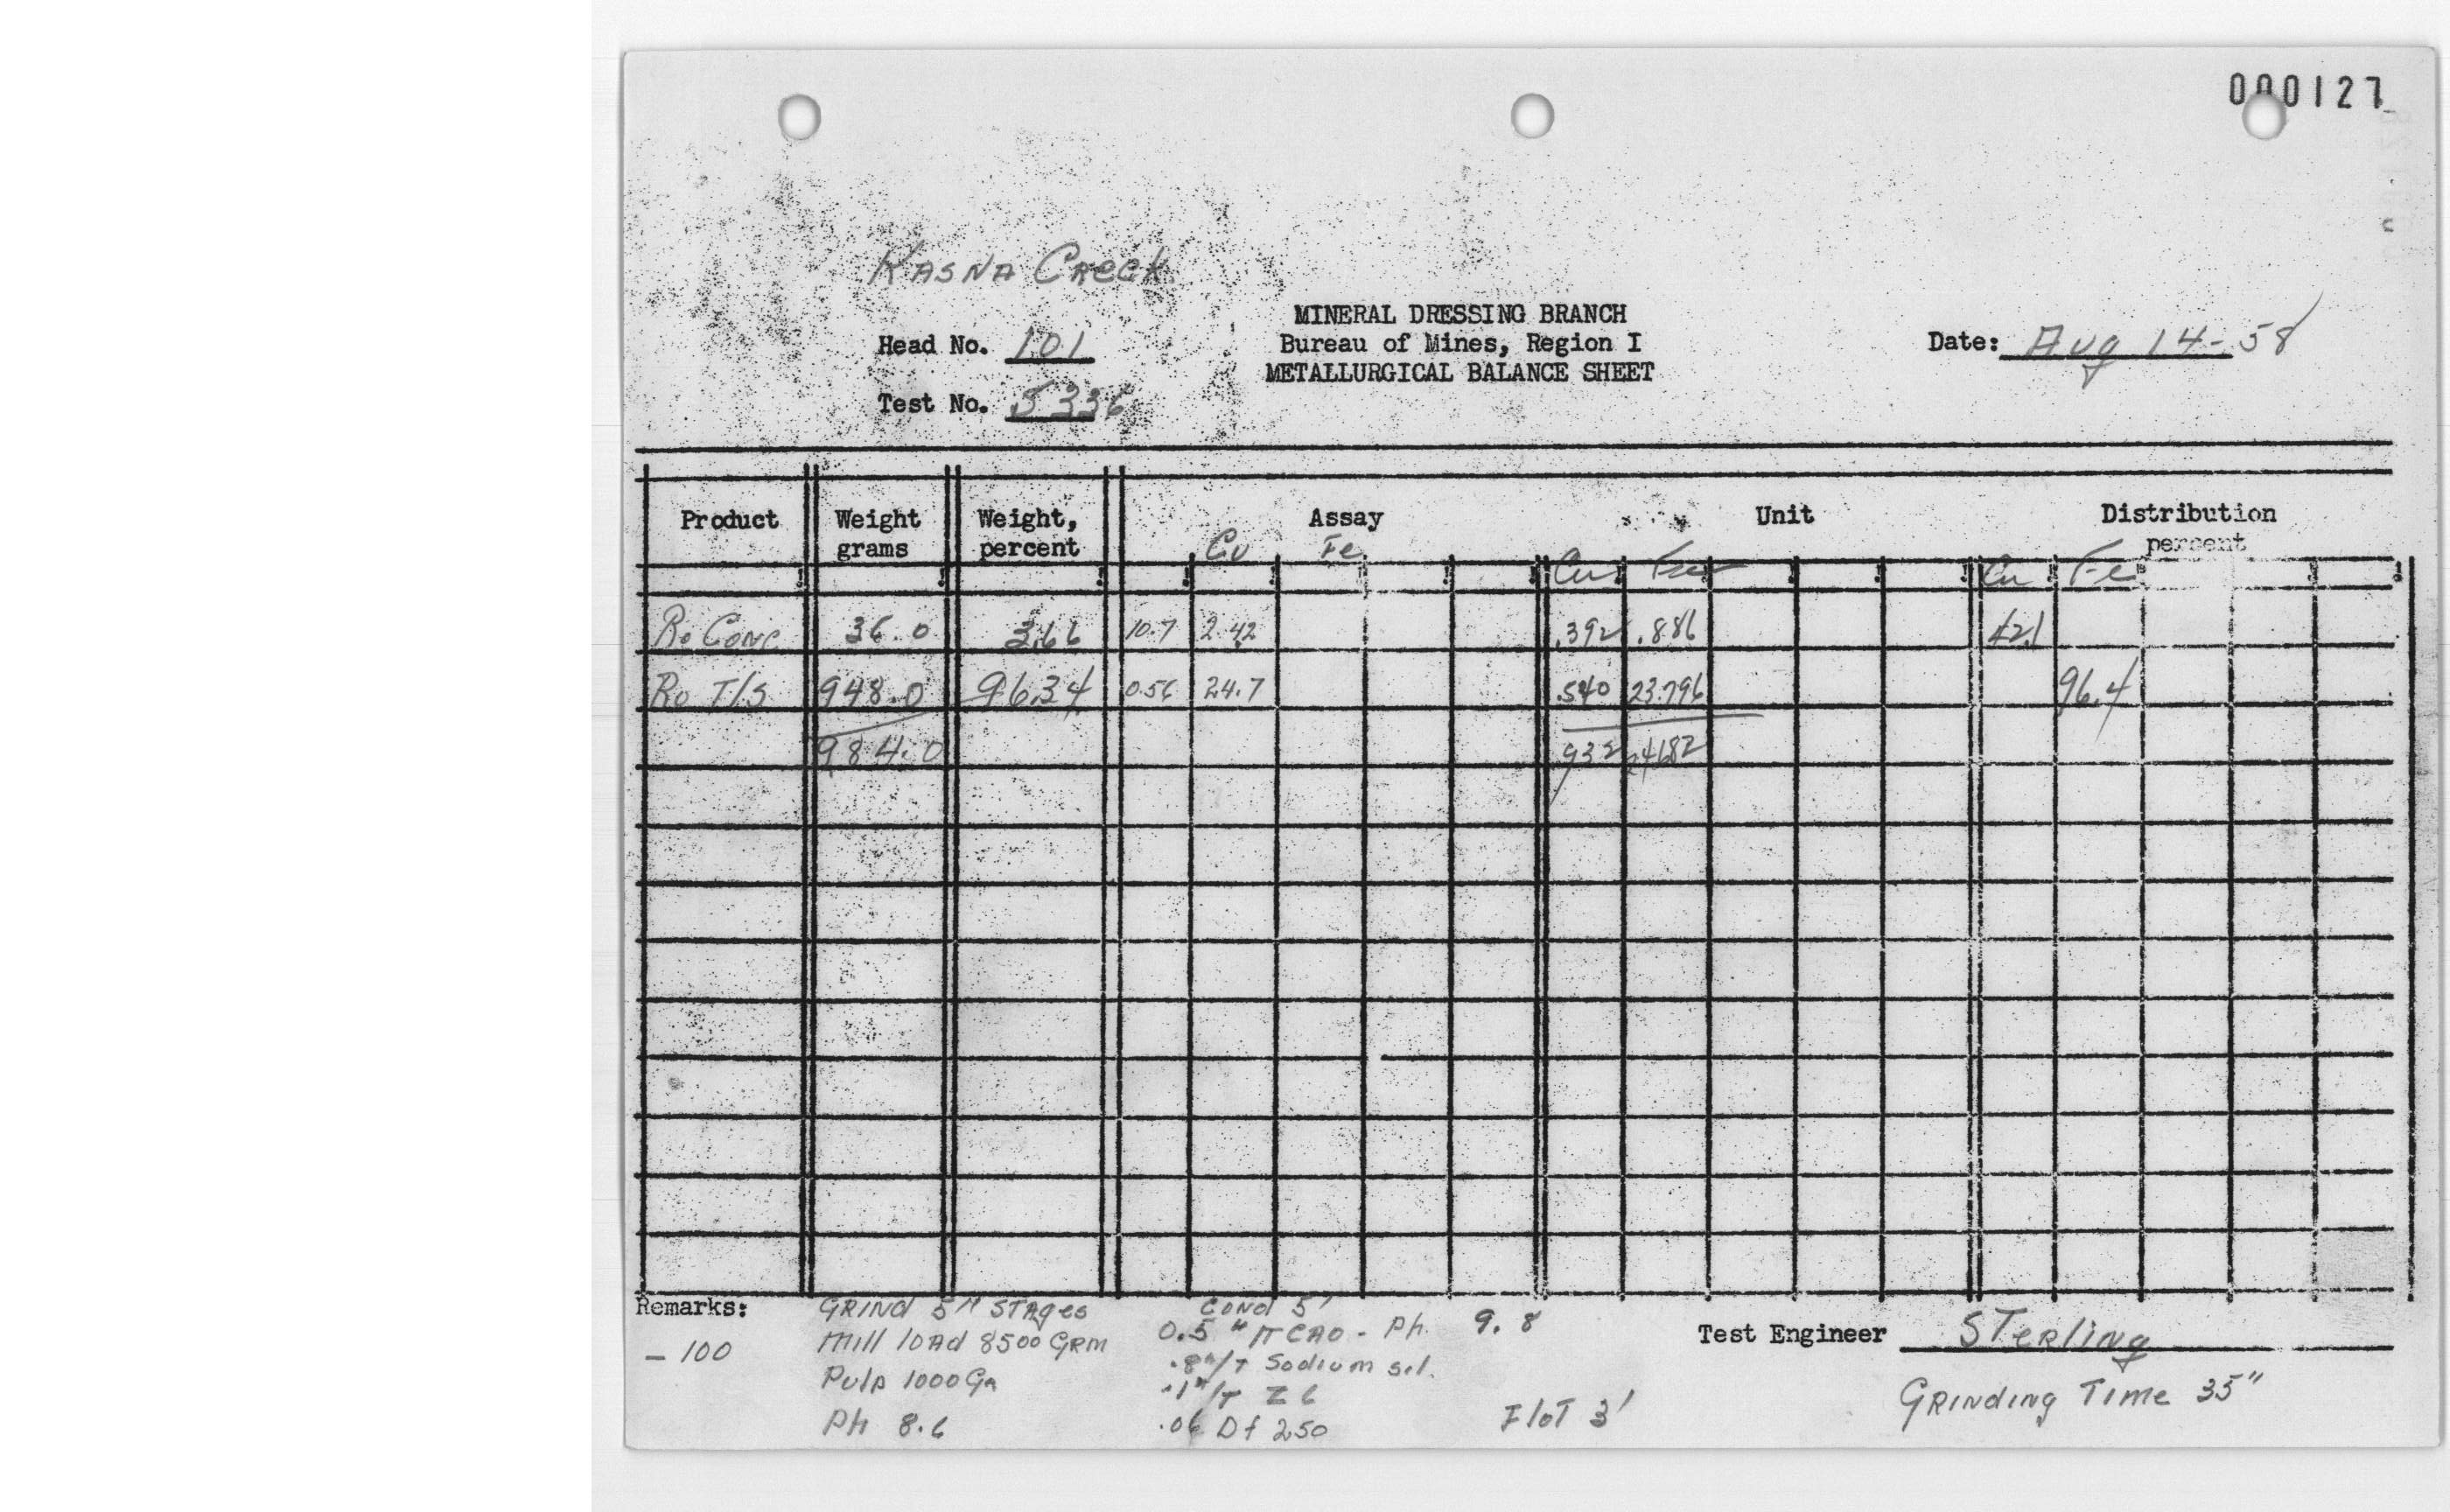 000127
KASNA CReek
MINERAL DRESSING BRANCH
Head No. 101 Bureau of Mines, Region I Date: Aug 14-58
METALLURGICAL BALANCE SHEET
Test No. 5336
Product Weight grams Weight, percent Assay Unit Distribution percent
Cu Fe Cu Fe Cu Fe
Ro Conc. 36.0 3.66 10.7 2.42 .392 .886 42.1
Ro T/S 948.0 96.34 0.56 24.7 .540 23.796 96.4
984.0 .932 24.682
Remarks: GRINd 5" STAges Cond 5'
-100 Mill lOAd 8500 GRM 0.5 #/T CAO - Ph. 9.8 Test Engineer STeRling
Pulp 1000 Gr .8#/T Sodium sil.
.1#/T Z 6 GRINding Time 35"
PH 8.6 .06 Df 250 FloT 3'